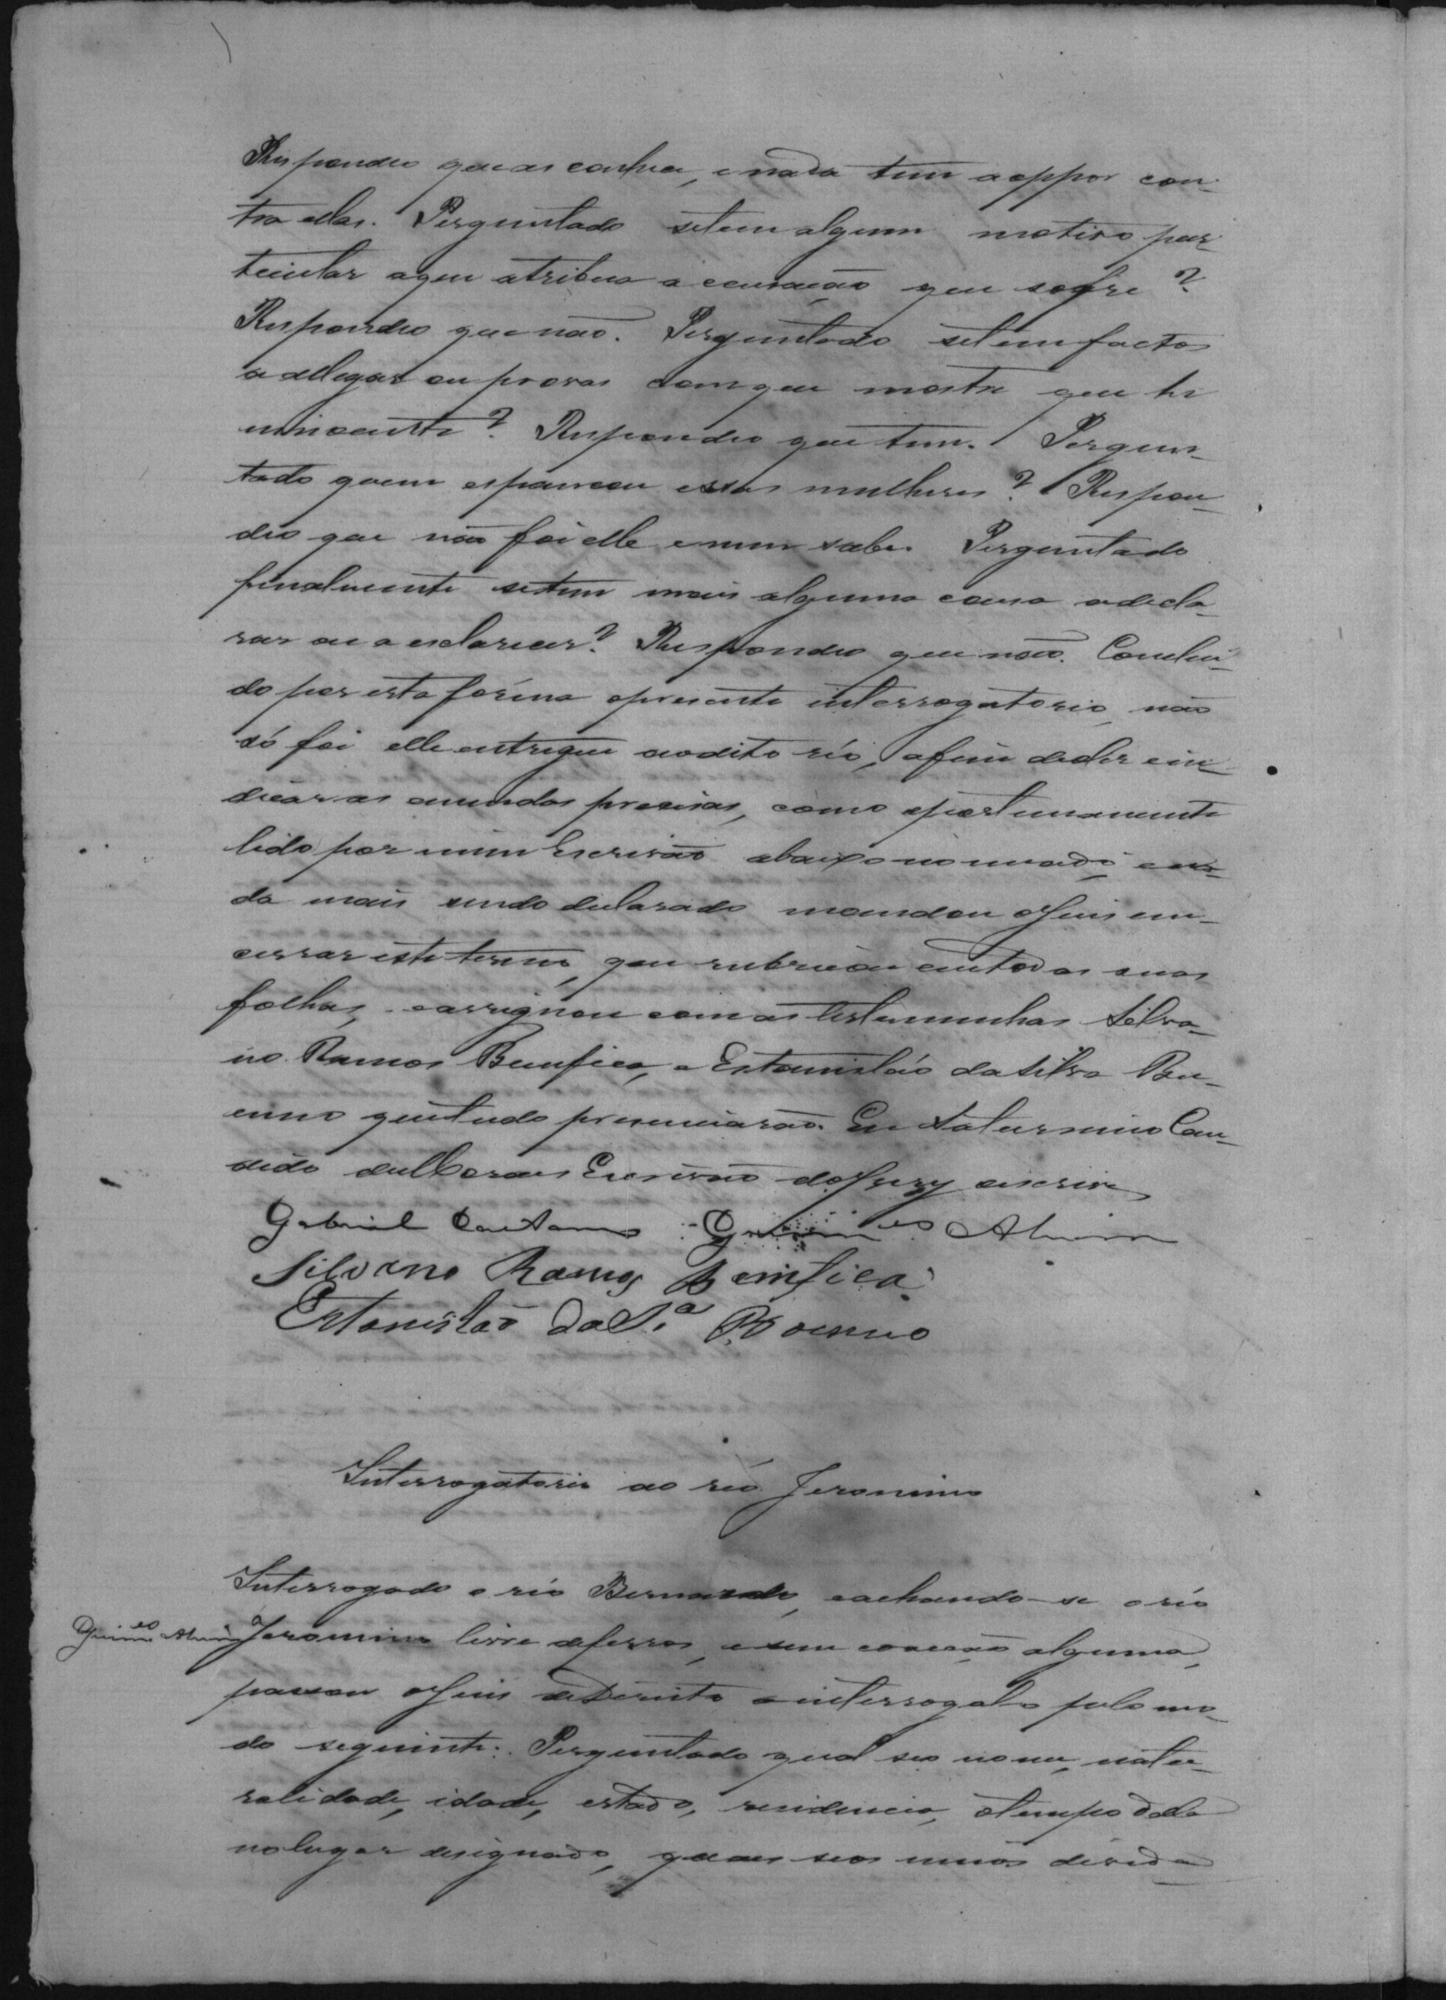 Respondeo que as conhece, e nada tem a oppor con-
tra ellas. Perguntado se tem algum motivo par-
ticular a que atribua a accusação que soffre?
Respondeo que não. Perguntado se tem factos
a allegar ou provas com que mostre que he
innocente? Respondeo que tem. Pergun-
tado quem espancou essas mulheres? Respon-
deo que não foi elle e nem sabe. Perguntado
finalmente se tem mais alguma cousa a decla-
rar ou a esclarecer? Respondeo que não. Conclui-
do por esta forma o presente interrogatorio, não
só foi elle entregue ao dito réo, afim de ler e in-
dicar as emendas precisas, como oportunamente
lido por mim Escrivão abaixo nomeado, e na-
da mais sendo declarado mandou o Juis en-
cerrar este termo, que rubricou em todas suas
folhas, e assignou com as testemunhas Silva-
no Ramos Bemfica, e Estanisláo da Silva Bu-
enno que tudo presenciarão. Eu Saturnino Can-
dido de Moraes Escrivão do Jury escrivi
Gabriel Caetano Guim.es Alvim
Silvano Ramos Bemfica
Estanisláo da S.a Boenno
Interrogatorio ao réo Jeronimo
Interrogado o réo Bernardo, e achando-se o réo
Guim.es Alvim
Jeronimo livre de ferros, e sem coacção alguma,
passou o Juis de Direito a interrogalo pelo mo-
do seguinte: Perguntado qual seo nome, natu-
ralidade, idade, estado, residencia, o tempo dela
no lugar designado, quaes seos meios de vida